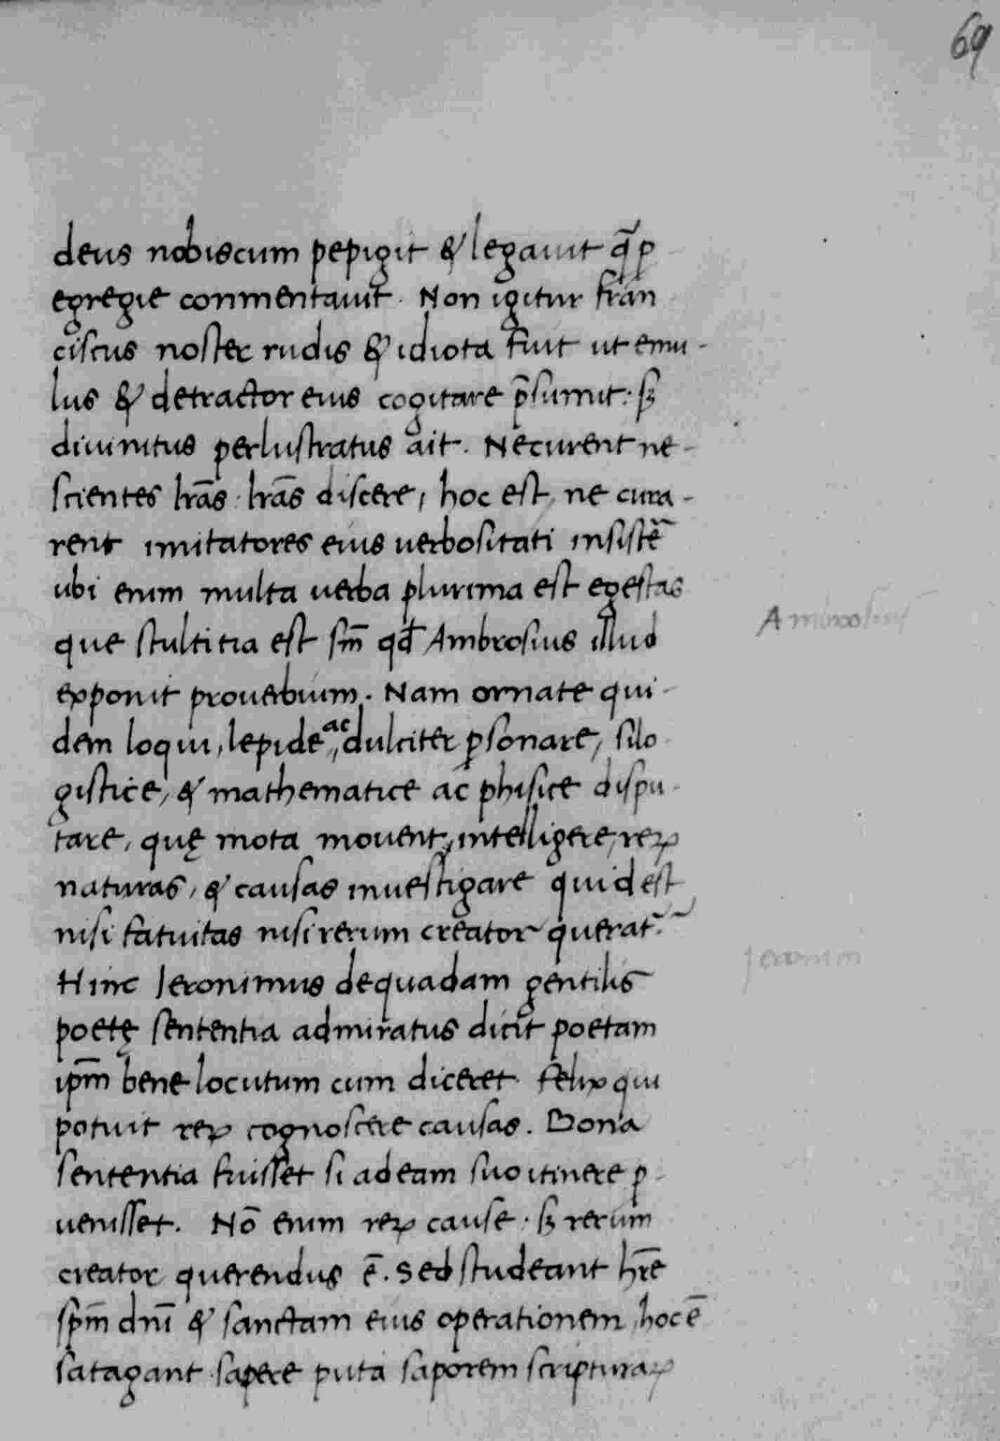 69
deus nobiscum pepigit & legauit q̃ ꝑ
egregie conmentauit. Non igitur fran
ciscus noster rudis & idiota fuit ut emu-
lus & detractor eius cogitare p̃sumit: sꝫ
diuinitus perlustratus ait. Ne curent ne-
scientes lrãs lrãs discere, hoc est, ne cura-
rent imitatores eius uerbositati insistẽ
ubi enim multa uerba plurima est egestas
que stultitia est sm̃ qđ Ambrosius illud
Ambrosius
exponit prouerbium. Nam ornate qui-
dem loqui, lepide, ac dulciter ꝑsonare, silo-
gistice, & mathematice ac phisice dispu-
tare, quę mota mouent, intelligere, reꝝ
naturas, & causas inuestigare quid est
nisi fatuitas nisi rerum creator querat᷑.
Hinc Jeronimus de quadam gentilis
Jeronim
poetę sententia admiratus dicit poetam
ipm̃ bene locutum cum diceret. felix qui
potuit reꝝ cognoscere causas. Bona
sententia fuisset si ad eam suo itinere ꝑ-
uenisset. Nõ enim reꝝ cause: sꝫ rerum
creator querendus ẽ. Sed studeant hr̃e
spm̃ dnĩ & sanctam eius operationem, hoc ẽ
satagant sapere puta saporem scripturaꝝ